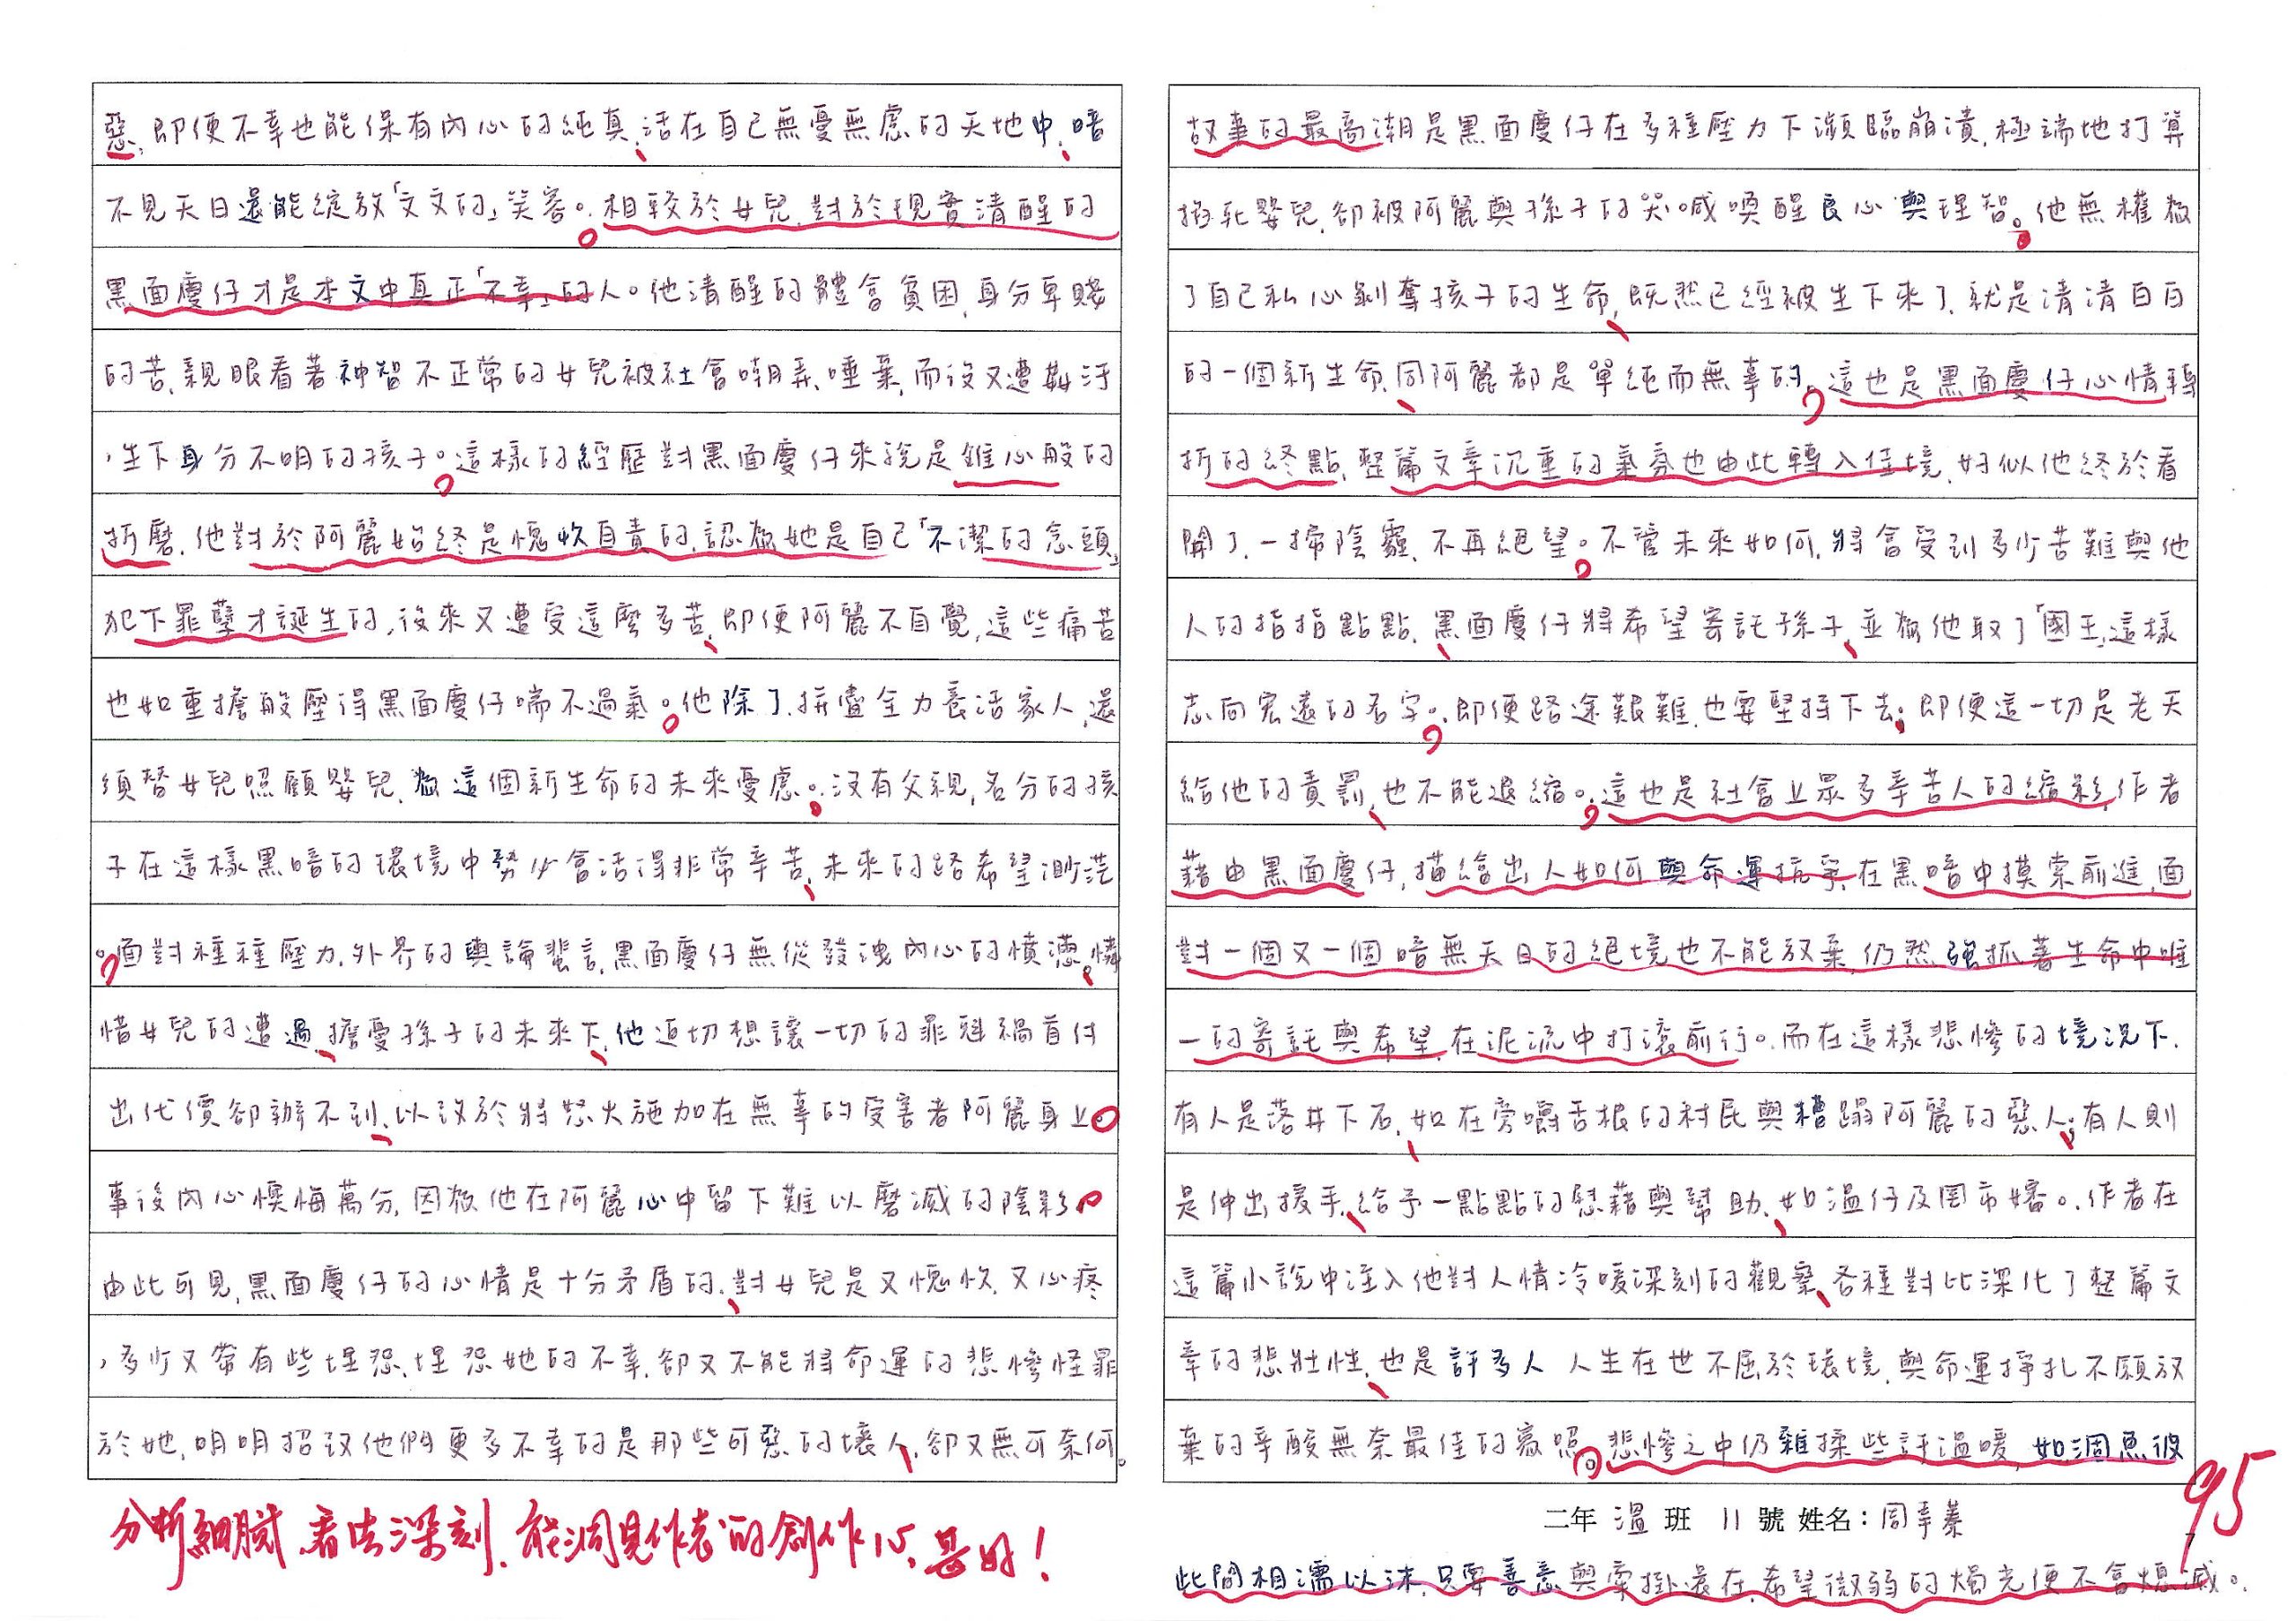 惡,即便不幸也能保有內心的純真,活在自己無憂無慮的天地中,暗
不見天日還能綻放「文文的」笑容。相較於女兒,對於現實清醒的
黑面慶仔才是本文中真正「不幸」的人。他清醒的體會貧困,身分卑賤
的苦,親眼看著神智不正常的女兒被社會嘲弄、唾棄,而後又遭姦汙
,生下身分不明的孩子。這樣的經歷對黑面慶仔來說是錐心般的
折磨,他對於阿麗始終是愧疚自責的,認為她是自己「不潔的念頭」
犯下罪孽才誕生的,後來又遭受這麼多苦,即便阿麗不自覺,這些痛苦
也如重擔般壓得黑面慶仔喘不過氣。他除了拼盡全力養活家人,還
須替女兒照顧嬰兒,為這個新生命的未來憂慮。沒有父親,名分的孩
子在這樣黑暗的環境中勢必會活得非常辛苦,未來的路希望渺茫
。面對種種壓力,外界的輿論蜚言,黑面慶仔無從發洩內心的憤懣。憐
惜女兒的遭遇,擔憂孫子的未來下,他迫切想讓一切的罪魁禍首付
出代價卻辦不到,以致於將怒火施加在無辜的受害者阿麗身上。
事後內心懊悔萬分,因為他在阿麗心中留下難以磨滅的陰影。
由此可見,黑面慶仔的心情是十分矛盾的,對女兒是又愧疚又心疼
,多少又帶有些埋怨,埋怨她的不幸,卻又不能將命運的悲慘怪罪
於她,明明招致他們更多不幸的是那些可惡的壞人,卻又無可奈何。
分析細膩、看法深刻,能洞見作者的創作心,甚好!
故事的最高潮是黑面慶仔在多種壓力下瀕臨崩潰,極端地打算
掐死嬰兒,卻被阿麗與孫子的哭喊喚醒良心與理智。他無權為
了自己私心剝奪孩子的生命,既然已經被生下來了,就是清清白白
的一個新生命,同阿麗都是單純而無辜的,這也是黑面慶仔心情轉
折的終點,整篇文章沉重的氣氛也由此轉入佳境,好似他終於看
開了,一掃陰霾,不再絕望。不管未來如何,將會受到多少苦難與他
人的指指點點,黑面慶仔將希望寄託孫子,並為他取了「國王」這樣
志向宏遠的名字。即便路途艱難,也要堅持下去;即便這一切是老天
給他的責罰,也不能退縮。這也是社會上眾多辛苦人的縮影,作者
藉由黑面慶仔,描繪出人如何與命運抗爭,在黑暗中摸索前進,面
對一個又一個暗無天日的絕境也不能放棄,仍然強抓著生命中唯
一的寄託與希望,在泥流中打滾前行。而在這樣悲慘的境況下,
有人是落井下石,如在旁嚼舌根的村民與糟蹋阿麗的惡人;有人則
是伸出援手,給予一點點的慰藉與幫助,如溫仔及罔市嬸。作者在
這篇小說中注入他對人情冷暖深刻的觀察,各種對比深化了整篇文
章的悲壯性,也是許多人 人生在世不屈於環境,與命運掙扎不願放
棄的辛酸無奈最佳的寫照。悲慘之中仍雜揉些許溫暖,如涸魚彼
95
二年 溫 班 11 號 姓名:周幸蓁
7
此間相濡以沫,只要善意與牽掛還在,希望微弱的燭光便不會熄滅。